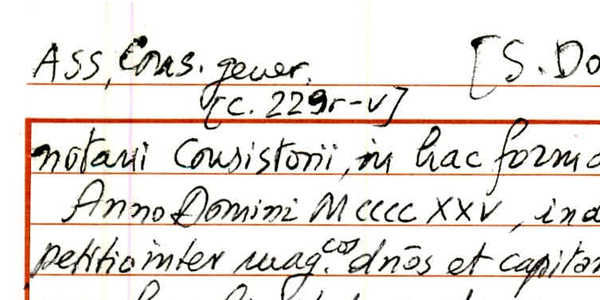 Ass. Cons. gener. [S. Do
[c. 229r-v]
notarii Consistorii, in hac forma
Anno Domini MCCCCXXV, ind
petitio inter mag.cos dnōs et capitan